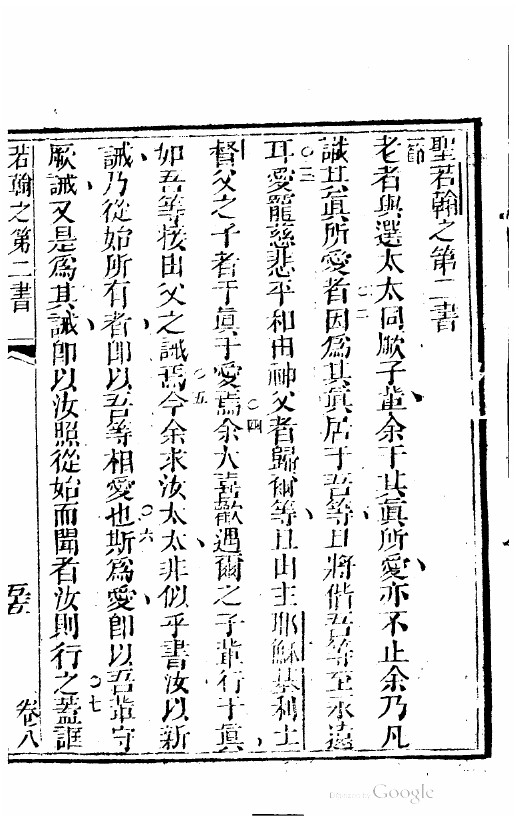 聖若翰之第二書
節 老者與選太太同厥子輩余于其眞所愛亦不止余乃凡
識其眞所愛者○二因爲其眞居于吾等且將偕吾等至永遠
○三耳愛寵慈悲平和由神父者歸爾等且由主耶穌基利士
督父之子者于眞于愛焉○四余大喜歡遇爾之子輩行于眞
如吾等接由父之誡焉○五今余求汝太太非似乎書汝以新
誡乃從始所有者即以吾等相愛也○六斯爲愛即以吾輩守
厥誡又是爲其誡即以汝照從始而聞者汝則行之○七蓋誆
若翰之第二書 卷八
Digitized by Google